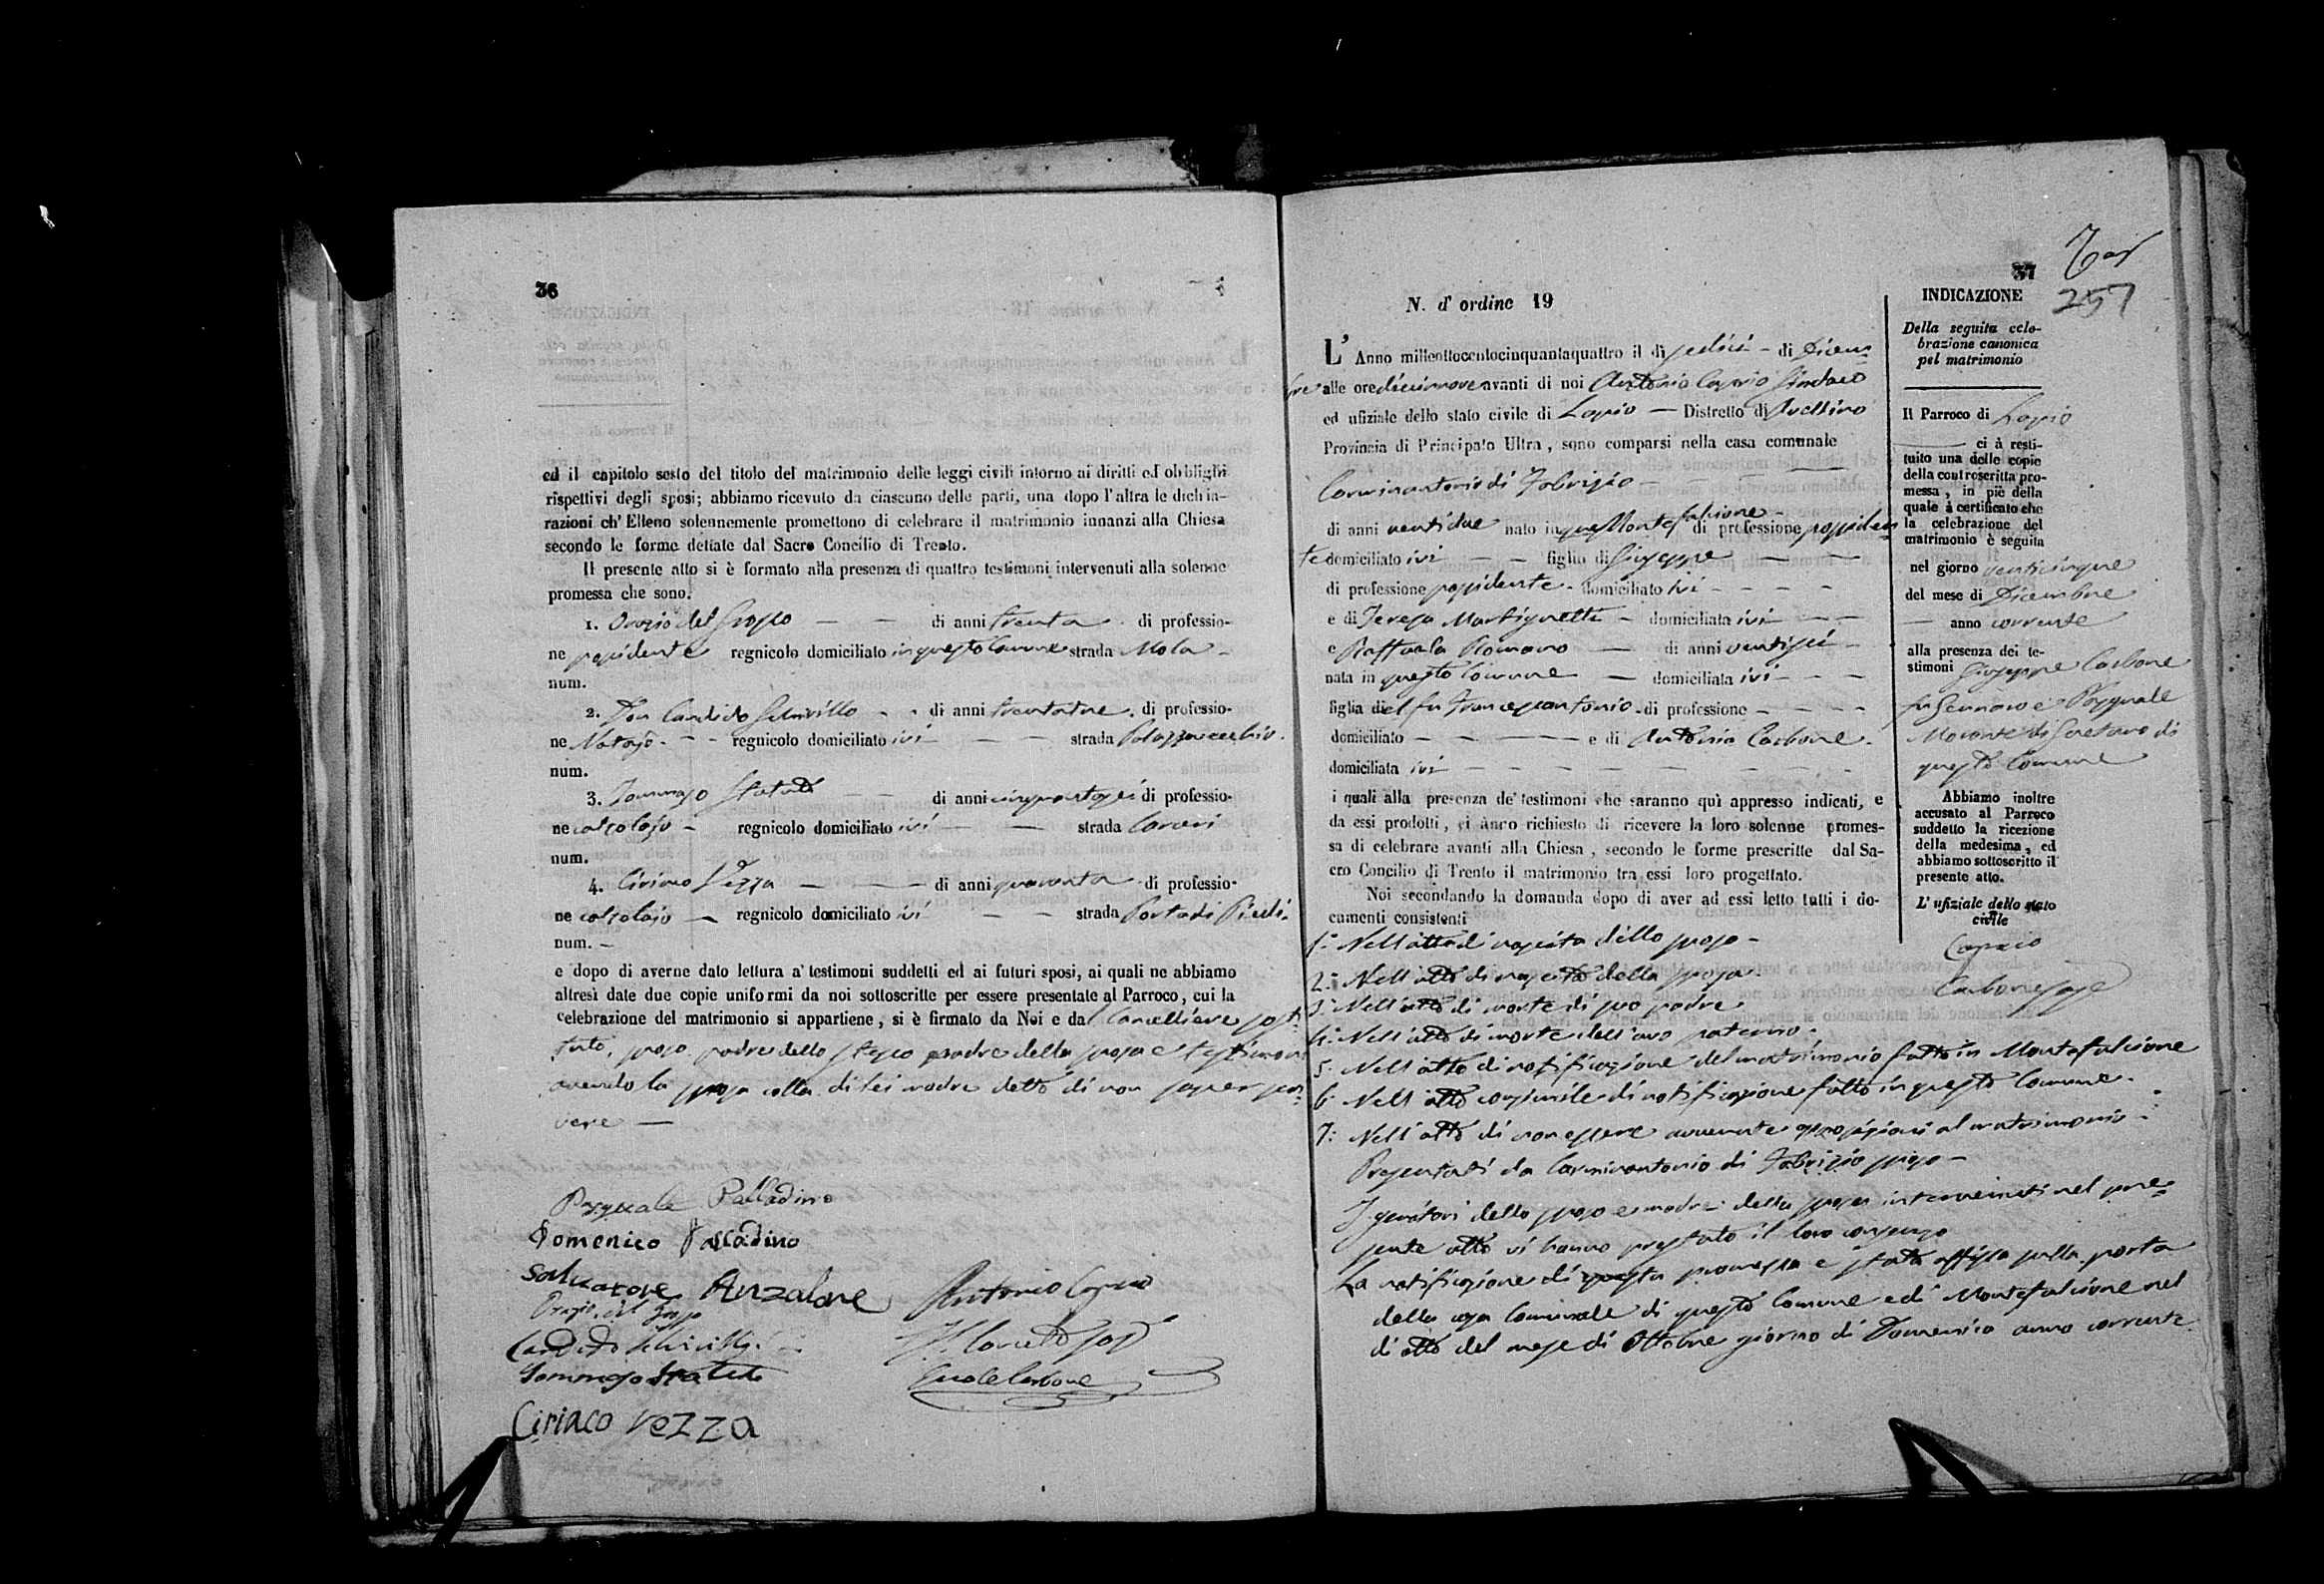 36
ed il capitolo sesto del titolo del matrimonio delle leggi civili intorno ai diritti ed obblighi
rispettivi degli sposi; abbiamo ricevuto da ciascuno delle parti, una dopo l'altra le dichia-
razioni ch' Elleno solennemente promettono di celebrare il matrimonio innanzi alla Chiesa
secondo le forme dettate dal Sacro Concilio di Trento.
Il presente atto si è formato alla presenza di quattro testimoni intervenuti alla solenne
promessa che sono.
1. Orazio del Grosso — — di anni trenta di professio-
ne possidente regnicolo domiciliato in questo Comune strada Mola -
num.
2. Don Candido Schirillo - - di anni trentatre di professio-
ne Notajo - - regnicolo domiciliato ivi — — strada Palazzovecchio.
num.
3. Tommaso Statuto — — di anni cinquantasei di professio-
ne calzolajo - regnicolo domiciliato ivi — — strada
num.
4. Ciriaco Vezza — — — di anni quaranta di professio-
ne calzolajo — regnicolo domiciliato ivi — — strada Porta di Piedi.
num. —
e dopo di averne dato lettura a' testimoni suddetti ed ai futuri sposi, ai quali ne abbiamo
altresì date due copie uniformi da noi sottoscritte per essere presentate al Parroco, cui la
celebrazione del matrimonio si appartiene, si è firmato da Noi e dal Cancelliere sosti-
tuto, sposo, padre dello stesso padre della sposa e testimoni
avendo la sposa colla di lei madre detto di non saper scri-
vere —
Pasquale Palladino
Domenico Palladino
Salvatore Anzalone
Orazio del Grosso
Candido Schirillo
Tommaso Statuto
Ciriaco Vezza
Antonio Caprio
Carbone
37
257
N. d' ordine 19
L' Anno milleottocentocinquantaquattro il dì sedici - di Dicem-
bre alle ore diecinnove avanti di noi Antonio Caprio Sindaco
ed ufiziale dello stato civile di Lapio — Distretto di Avellino
Provincia di Principato Ultra, sono comparsi nella casa comunale
Carminantonio di Fabrizio — — —
di anni ventidue nato in Montefalcione - di professione possiden
te domiciliato ivi — — figlio di Giuseppe — —
di professione possidente - domiciliato ivi - - - -
e di Teresa Martignetti - domiciliata ivi - — -
e Raffaela Romano — di anni ventisei -
nata in questo Comune — domiciliata ivi - - -
figlia del fu Francescantonio - di professione - - - -
domiciliato - - — — e di Antonia Carbone -
domiciliata ivi — - - - - - - -
i quali alla presenza de' testimoni che saranno quì appresso indicati, e
da essi prodotti, ci ànno richiesto di ricevere la loro solenne promes-
sa di celebrare avanti alla Chiesa, secondo le forme prescritte dal Sa-
cro Concilio di Trento il matrimonio tra essi loro progettato.
Noi secondando la domanda dopo di aver ad essi letto tutti i do-
cumenti consistenti
1.° Nell'atto di nascita dello sposo -
2.° Nell'atto di nascita della sposa
3.° Nell'atto di morte di suo padre
4.° Nell'atto di morte dell'avo paterno -
5. Nell'atto di notificazione del matrimonio fatto in Montefalcione
6. Nell'atto consimile di notificazione fatto in questo Comune -
7: Nell'atto di non essere avvenute opposizioni al matrimonio -
Presentati da Carminantonio di Fabrizio sposo -
I genitori dello sposo e madre della sposa intervenuti nel pre-
sente atto vi hanno prestato il loro consenso
La notificazione di questa promessa è stata affissa sulla porta
della casa Comunale di questo Comune e di Montefalcione nel
dì otto del mese di Ottobre giorno di Domenica anno corrente
INDICAZIONE
Della seguita cele-
brazione canonica
pel matrimonio
Il Parroco di Lapio
— ci à resti-
tuito una delle copie
della controscritta pro-
messa, in piè della
quale à certificato che
la celebrazione del
matrimonio è seguita
nel giorno venticinque
del mese di Dicembre
— anno corrente
alla presenza dei te-
stimoni Giuseppe Carbone
fu Gennaro e Pasquale
Morante di Gaetano di
questo Comune
Abbiamo inoltre
accusato al Parroco
suddetto la ricezione
della medesima, ed
abbiamo sottoscritto il
presente atto.
L' ufiziale dello stato
civile
Caprio
Carbone